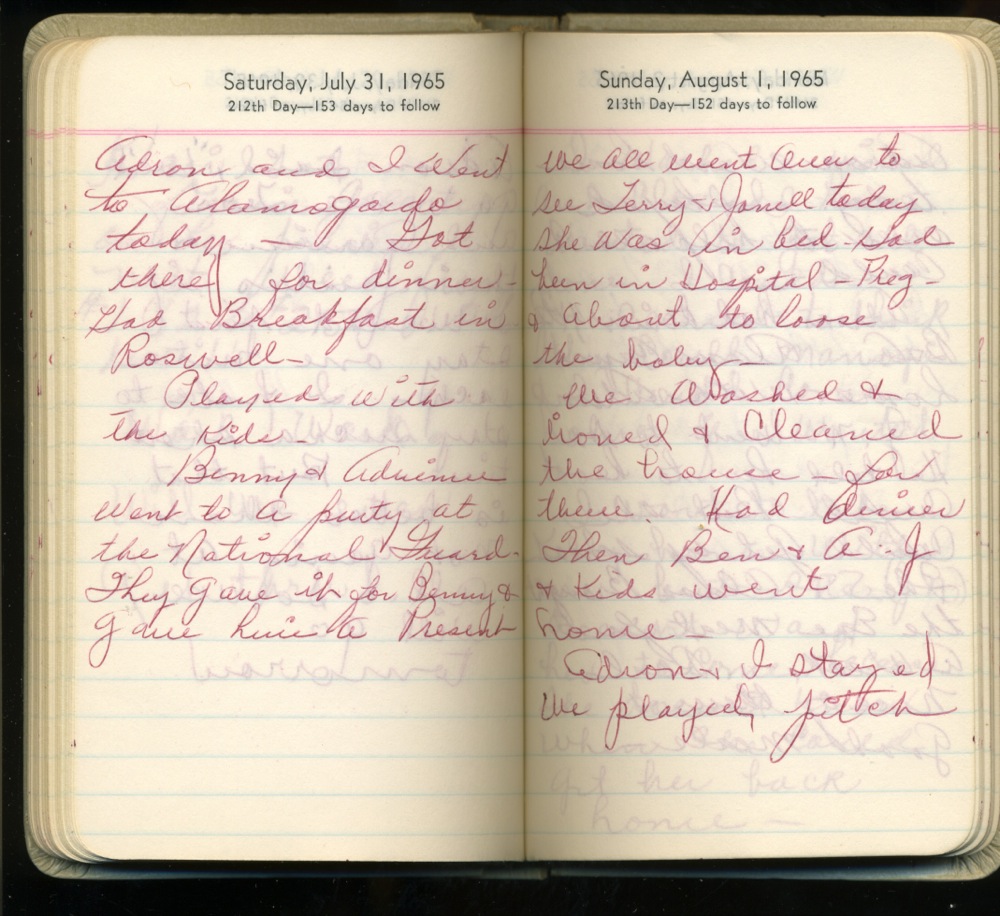 Saturday, July 31, 1965
212th Day—153 days to follow
Adron and I Went
to Alamogordo
today — Got
there for dinner -
Had Breakfast in
Roswell -
Played with
the Kids -
Benny &
Went to a party at
the National Guard -
They gave it for Benny &
gave him a Present
Sunday, August 1, 1965
213th Day—152 days to follow
We all went Over to
see Terry & Jonell today
She Was in bed - Had
been in Hospital - Preg -
& about to loose
the baby —
We Washed &
ironed & Cleaned
the house - for
them. Had dinner
Then Ben & A - J
& Kids went
home -
Adron & I stayed
We played pitch